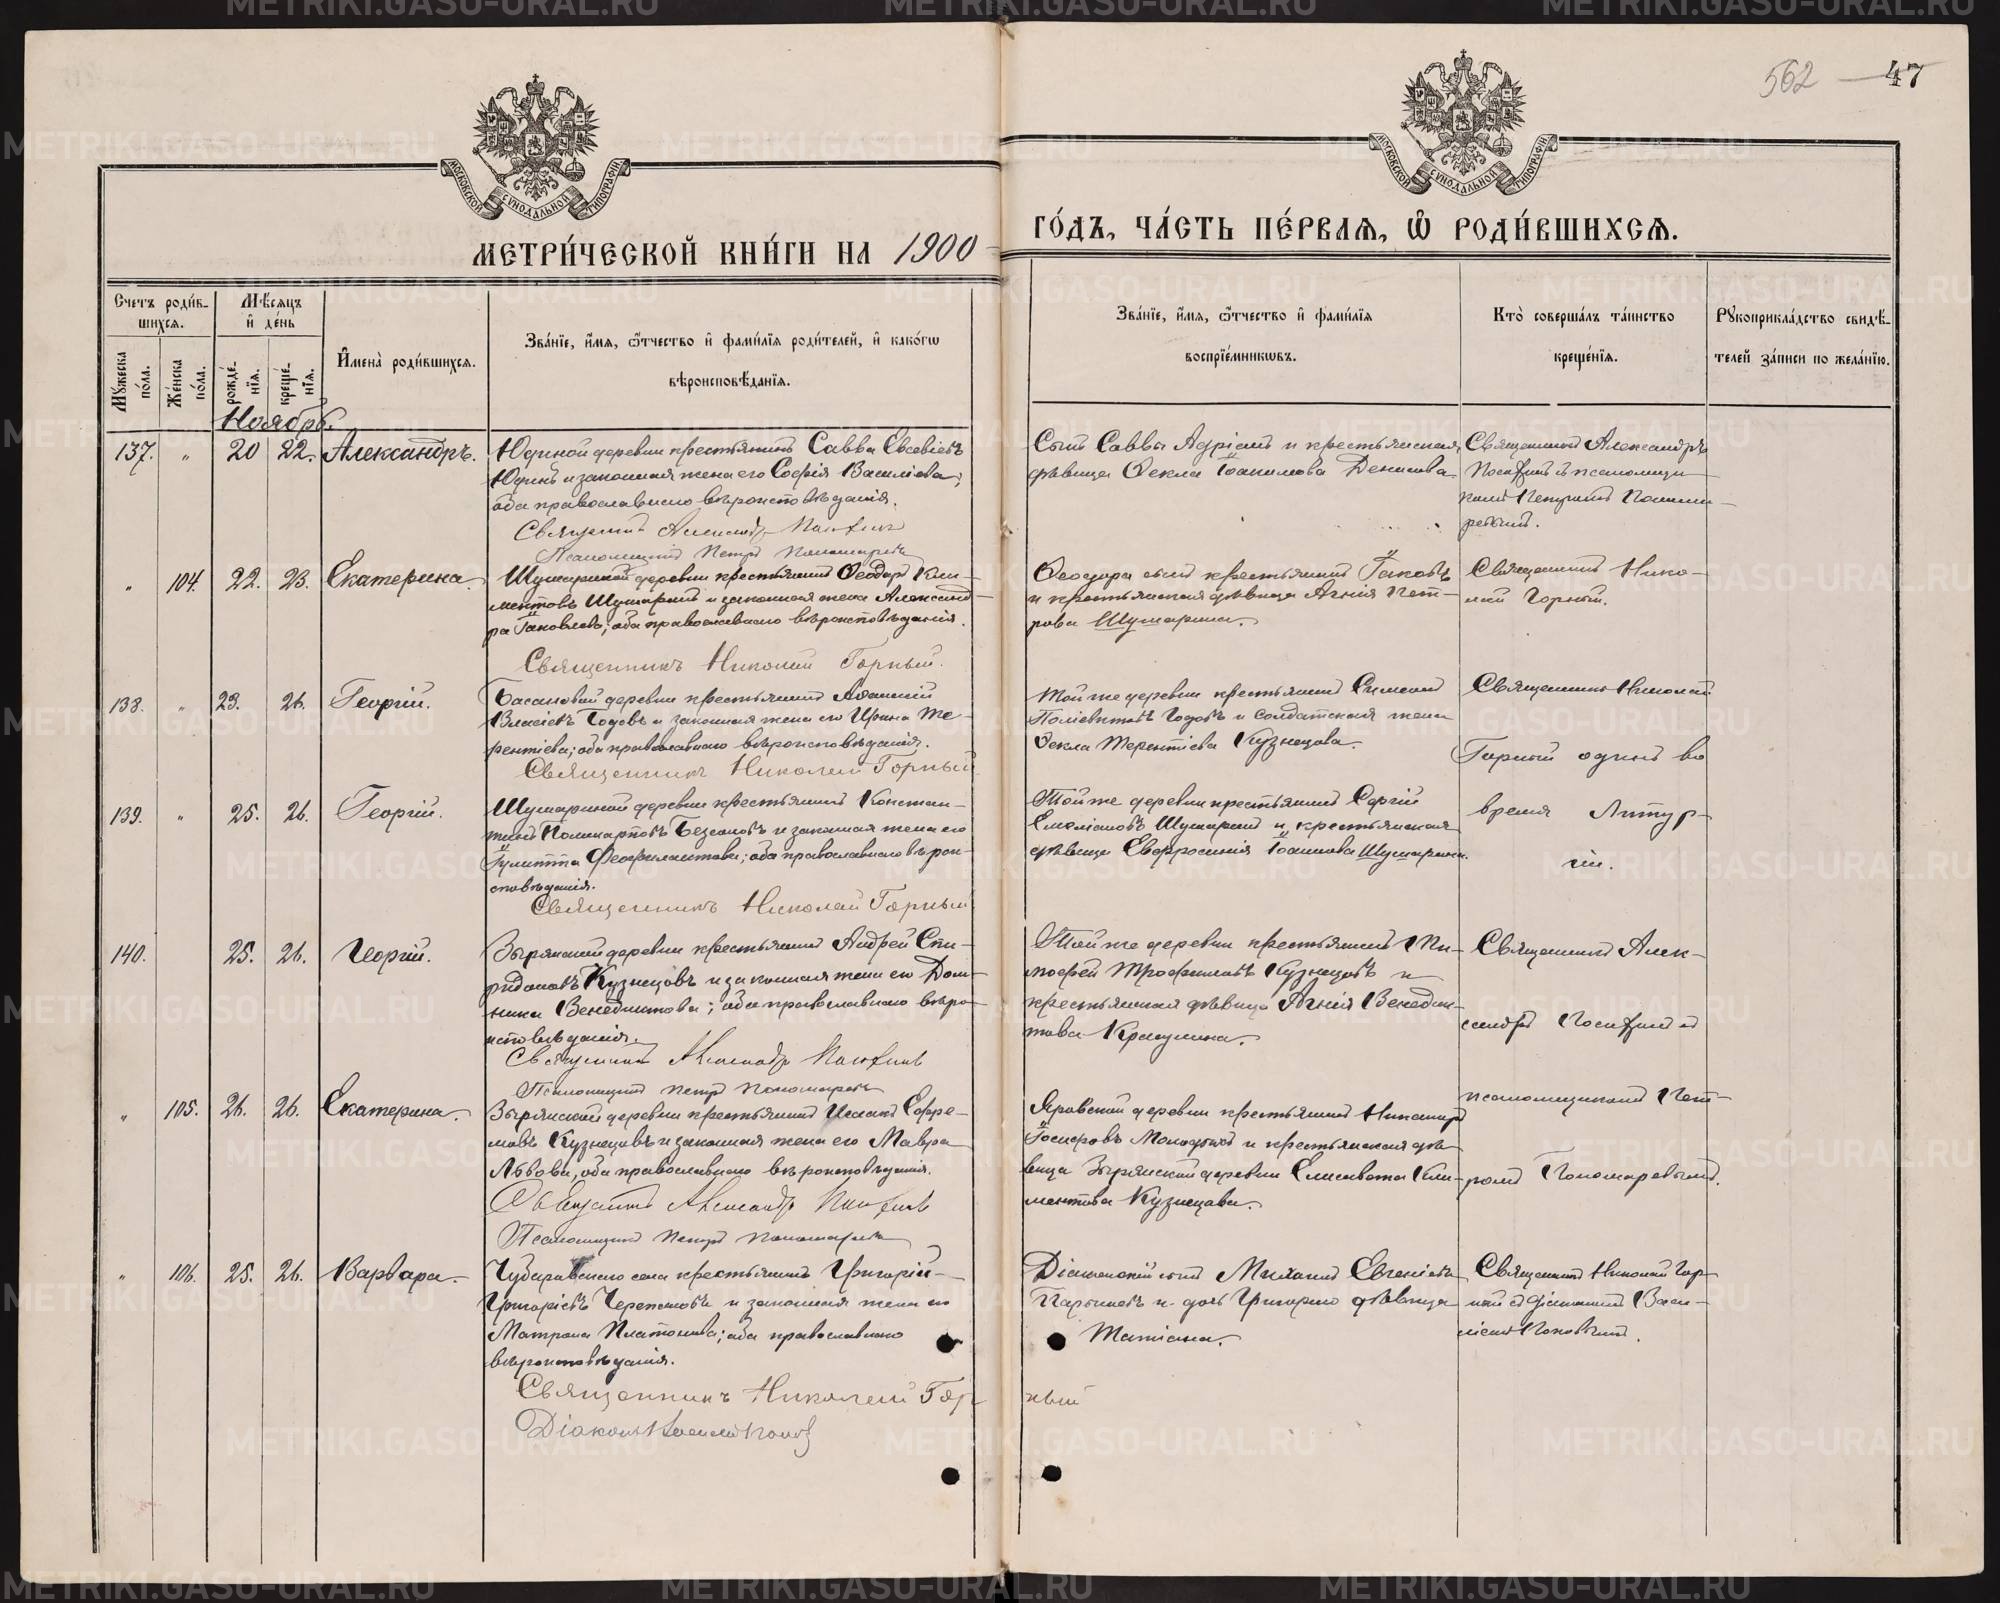 562 47
МОСКОВСКОЙ СѴНОДАЛЬНОЙ ТИПОГРАФІИ
МОСКОВСКОЙ СѴНОДАЛЬНОЙ ТИПОГРАФІИ
МЕТРИ́ЧЕСКОЙ КНИ́ГИ НА 1900
ГО́ДЪ, ЧА́СТЬ ПЕ́РВАѦ, Ѡ РОДИ́ВШИХСѦ.
Счетъ роди́в-
шихсѧ.
Мѣ́сѧцъ
и҆ де́нь
И҆мена̀ роди́вшихсѧ.
Зва́нїе, и҆́мѧ, ѻ҆́тчество и҆ фами́лїѧ роди́телей, и҆ како́гѡ
вѣроисповѣ́данїѧ.
Мꙋ́жеска по́ла.
Же́нска по́ла.
рожде́нїѧ.
креще́нїѧ.
Зва́нїе, и҆́мѧ, ѻ҆́тчество и҆ фами́лїѧ
воспрїе́мникѡвъ.
Кто̀ соверша́лъ та́инство
креще́нїѧ.
Рꙋкоприкла́дство свидѣ́-
телей за́писи по жела́нїю.
Ноябрь.
137. " 20 22. Александръ.
Юдиной деревни крестьянинъ Савва Евсевіевъ
Юдинъ и законная жена его Софія Василіева;
оба православнаго вѣроисповѣданія.
Священникъ Александръ
Псаломщикъ Петръ Пономаревъ
Сынъ Саввы Адріанъ и крестьянская
дѣвица Ѳекла Іоакимова Денисова.
Священникъ Александръ
съ псаломщи-
комъ Петромъ Понома-
ревымъ.
" 104. 22. 23. Екатерина.
Шумариной деревни крестьянинъ Ѳеодоръ Кли-
ментовъ Шумаринъ и законная жена Александ-
ра Іаковлева; оба православнаго вѣроисповѣданія.
Священникъ Николай Горный.
Ѳеодора сынъ крестьянинъ Іаковъ
и крестьянская дѣвица Агнія Пет-
рова Шумарина.
Священникъ Нико-
лай Горный.
138. " 23. 26. Георгій.
Басановой деревни крестьянинъ
Власіевъ Годовъ и законная жена его Ирина Те-
рентіева; оба православнаго вѣроисповѣданія.
Священникъ Николай Горный
Той же деревни крестьянинъ Симеонъ
Годовъ и солдатская жена
Ѳекла Терентіева Кузнецова.
Священникъ Николай
Горный одинъ во
время Литур-
гіи.
139. " 25. 26. Георгій.
Шумариной деревни крестьянинъ Констан-
тинъ Поликарповъ и законная жена его
Іулитта Феофилактова; оба православнаго вѣрои-
сповѣданія.
Священникъ Николай Горный
Той же деревни крестьянинъ Сергій
Емеліановъ Шумаринъ и крестьянская
дѣвица Евфросинія Іоаннова Шумарина.
140. 25. 26. Георгій.
Зырянской деревни крестьянинъ Андрей Спи-
ридоновъ Кузнецовъ и законная жена его Дом-
ника Венедиктова; оба православнаго вѣро-
исповѣданія.
Священникъ Александръ
Псаломщикъ Петръ Пономаревъ
Той же деревни крестьянинъ Ти-
моѳей Трофимовъ Кузнецовъ и
крестьянская дѣвица Агнія Венедик-
това
Священникъ Алек-
сандръ съ
псаломщикомъ Пет-
ромъ Пономаревымъ.
" 105. 26. 26. Екатерина.
Зырянской деревни крестьянинъ Исаакъ Ефре-
мовъ Кузнецовъ и законная жена его Мавра
Львова, оба православнаго вѣроисповѣданія.
Священникъ Александръ
Псаломщикъ Петръ Пономаревъ
Яровской деревни крестьянинъ Никаноръ
Іосифовъ Молодыхъ и крестьянская дѣ-
вица Зырянской деревни Елисавета Кли-
ментова Кузнецова.
" 106. 25. 26. Варвара.
Чубаровскаго села крестьянинъ Григорій
Григоріевъ Черепановъ и законная жена его
Матрона Платонова; оба православнаго
вѣроисповѣданія.
Священникъ Николай Горный
Діаконъ
Діаконскій сынъ Михаилъ Евгеніевъ
и дочь Григорія дѣвица
Татіана.
Священникъ Николай Гор-
ный съ діакономъ Васи-
ліемъ Поповымъ.
METRIKI.GASO-URAL.RU